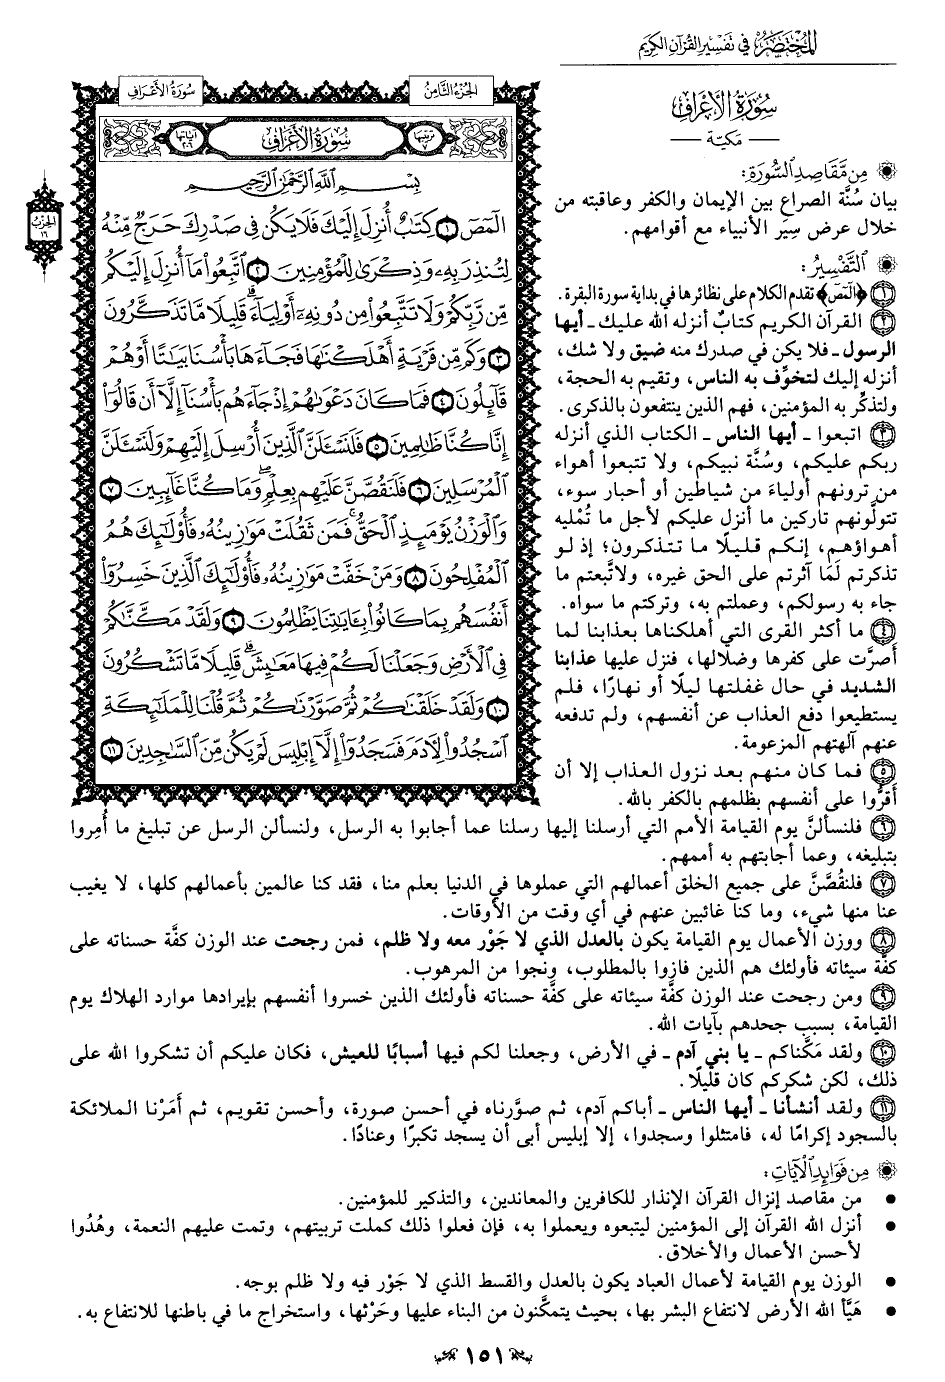 المختصر في تفسير القرآن الكريم
سورة الأعراف
الجزء الثامن
سُورَةُ الأَعْرَافِ
— مكيّة —
ترتيبها ٧
سُورَةُ الأَعْرَافِ
آياتها ٢٠٦
الحزب ١٦
بِسْمِ ٱللَّهِ ٱلرَّحْمَٰنِ ٱلرَّحِيمِ
الٓمٓصٓ ١ كِتَٰبٌ أُنزِلَ إِلَيْكَ فَلَا يَكُن فِى صَدْرِكَ حَرَجٌ مِّنْهُ
لِتُنذِرَ بِهِۦ وَذِكْرَىٰ لِلْمُؤْمِنِينَ ٢ ٱتَّبِعُوا۟ مَآ أُنزِلَ إِلَيْكُم
مِّن رَّبِّكُمْ وَلَا تَتَّبِعُوا۟ مِن دُونِهِۦٓ أَوْلِيَآءَ ۗ قَلِيلًا مَّا تَذَكَّرُونَ
٣ وَكَم مِّن قَرْيَةٍ أَهْلَكْنَٰهَا فَجَآءَهَا بَأْسُنَا بَيَٰتًا أَوْ هُمْ
قَآئِلُونَ ٤ فَمَا كَانَ دَعْوَىٰهُمْ إِذْ جَآءَهُم بَأْسُنَآ إِلَّآ أَن قَالُوٓا۟
إِنَّا كُنَّا ظَٰلِمِينَ ٥ فَلَنَسْـَٔلَنَّ ٱلَّذِينَ أُرْسِلَ إِلَيْهِمْ وَلَنَسْـَٔلَنَّ
ٱلْمُرْسَلِينَ ٦ فَلَنَقُصَّنَّ عَلَيْهِم بِعِلْمٍ ۖ وَمَا كُنَّا غَآئِبِينَ ٧
وَٱلْوَزْنُ يَوْمَئِذٍ ٱلْحَقُّ ۚ فَمَن ثَقُلَتْ مَوَٰزِينُهُۥ فَأُو۟لَٰٓئِكَ هُمُ
ٱلْمُفْلِحُونَ ٨ وَمَنْ خَفَّتْ مَوَٰزِينُهُۥ فَأُو۟لَٰٓئِكَ ٱلَّذِينَ خَسِرُوٓا۟
أَنفُسَهُم بِمَا كَانُوا۟ بِـَٔايَٰتِنَا يَظْلِمُونَ ٩ وَلَقَدْ مَكَّنَّٰكُمْ
فِى ٱلْأَرْضِ وَجَعَلْنَا لَكُمْ فِيهَا مَعَٰيِشَ ۗ قَلِيلًا مَّا تَشْكُرُونَ
١٠ وَلَقَدْ خَلَقْنَٰكُمْ ثُمَّ صَوَّرْنَٰكُمْ ثُمَّ قُلْنَا لِلْمَلَٰٓئِكَةِ
ٱسْجُدُوا۟ لِـَٔادَمَ فَسَجَدُوٓا۟ إِلَّآ إِبْلِيسَ لَمْ يَكُن مِّنَ ٱلسَّٰجِدِينَ ١١
من مقاصد السورة:
بيان سُنَّة الصراع بين الإيمان والكفر وعاقبته من
خلال عرض سِيَر الأنبياء مع أقوامهم.
التفسير:
١ ﴿الٓمٓصٓ﴾ تقدم الكلام على نظائرها في بداية سورة البقرة.
٢ القرآن الكريم كتابٌ أنزله الله عليك ـ أيها
الرسول ـ فلا يكن في صدرك منه ضيق ولا شك،
أنزله إليك لتخوِّف به الناس، وتقيم به الحجة،
ولتذكِّر به المؤمنين، فهم الذين ينتفعون بالذكرى.
٣ اتبعوا ـ أيها الناس ـ الكتاب الذي أنزله
ربكم عليكم، وسُنَّة نبيكم، ولا تتبعوا أهواء
من ترونهم أولياءَ من شياطين أو أحبار سوء،
تتولَّونهم تاركين ما أنزل عليكم لأجل ما تُمْليه
أهواؤهم، إنكم قليلًا ما تتذكرون؛ إذ لو
تذكرتم لَمَا آثرتم على الحق غيره، ولاتَّبعتم ما
جاء به رسولكم، وعملتم به، وتركتم ما سواه.
٤ ما أكثر القرى التي أهلكناها بعذابنا لما
أصرَّت على كفرها وضلالها، فنزل عليها عذابنا
الشديد في حال غفلتها ليلًا أو نهارًا، فلم
يستطيعوا دفع العذاب عن أنفسهم، ولم تدفعه
عنهم آلهتهم المزعومة.
٥ فما كان منهم بعد نزول العذاب إلا أن
أقرُّوا على أنفسهم بظلمهم بالكفر بالله.
٦ فلنسألنَّ يوم القيامة الأمم التي أرسلنا إليها رسلنا عما أجابوا به الرسل، ولنسألن الرسل عن تبليغ ما أُمِروا
بتبليغه، وعما أجابتهم به أممهم.
٧ فلنقُصَّنَّ على جميع الخلق أعمالهم التي عملوها في الدنيا بعلم منا، فقد كنا عالمين بأعمالهم كلها، لا يغيب
عنا منها شيء، وما كنا غائبين عنهم في أي وقت من الأوقات.
٨ ووزن الأعمال يوم القيامة يكون بالعدل الذي لا جَوْر معه ولا ظلم، فمن رجحت عند الوزن كفَّة حسناته على
كفَّة سيئاته فأولئك هم الذين فازوا بالمطلوب، ونجوا من المرهوب.
٩ ومن رجحت عند الوزن كفَّة سيئاته على كفَّة حسناته فأولئك الذين خسروا أنفسهم بإيرادها موارد الهلاك يوم
القيامة، بسبب جحدهم بآيات الله.
١٠ ولقد مَكَّناكم ـ يا بني آدم ـ في الأرض، وجعلنا لكم فيها أسبابًا للعيش، فكان عليكم أن تشكروا الله على
ذلك، لكن شكركم كان قليلًا.
١١ ولقد أنشأنا ـ أيها الناس ـ أباكم آدم، ثم صوَّرناه في أحسن صورة، وأحسن تقويم، ثم أَمَرْنا الملائكة
بالسجود إكرامًا له، فامتثلوا وسجدوا، إلا إبليس أبى أن يسجد تكبرًا وعنادًا.
من فوائد الآيات:
• من مقاصد إنزال القرآن الإنذار للكافرين والمعاندين، والتذكير للمؤمنين.
• أنزل الله القرآن إلى المؤمنين ليتبعوه ويعملوا به، فإن فعلوا ذلك كملت تربيتهم، وتمت عليهم النعمة، وهُدُوا
لأحسن الأعمال والأخلاق.
• الوزن يوم القيامة لأعمال العباد يكون بالعدل والقسط الذي لا جَوْر فيه ولا ظلم بوجه.
• هَيَّأ الله الأرض لانتفاع البشر بها، بحيث يتمكَّنون من البناء عليها وحَرْثها، واستخراج ما في باطنها للانتفاع به.
١٥١